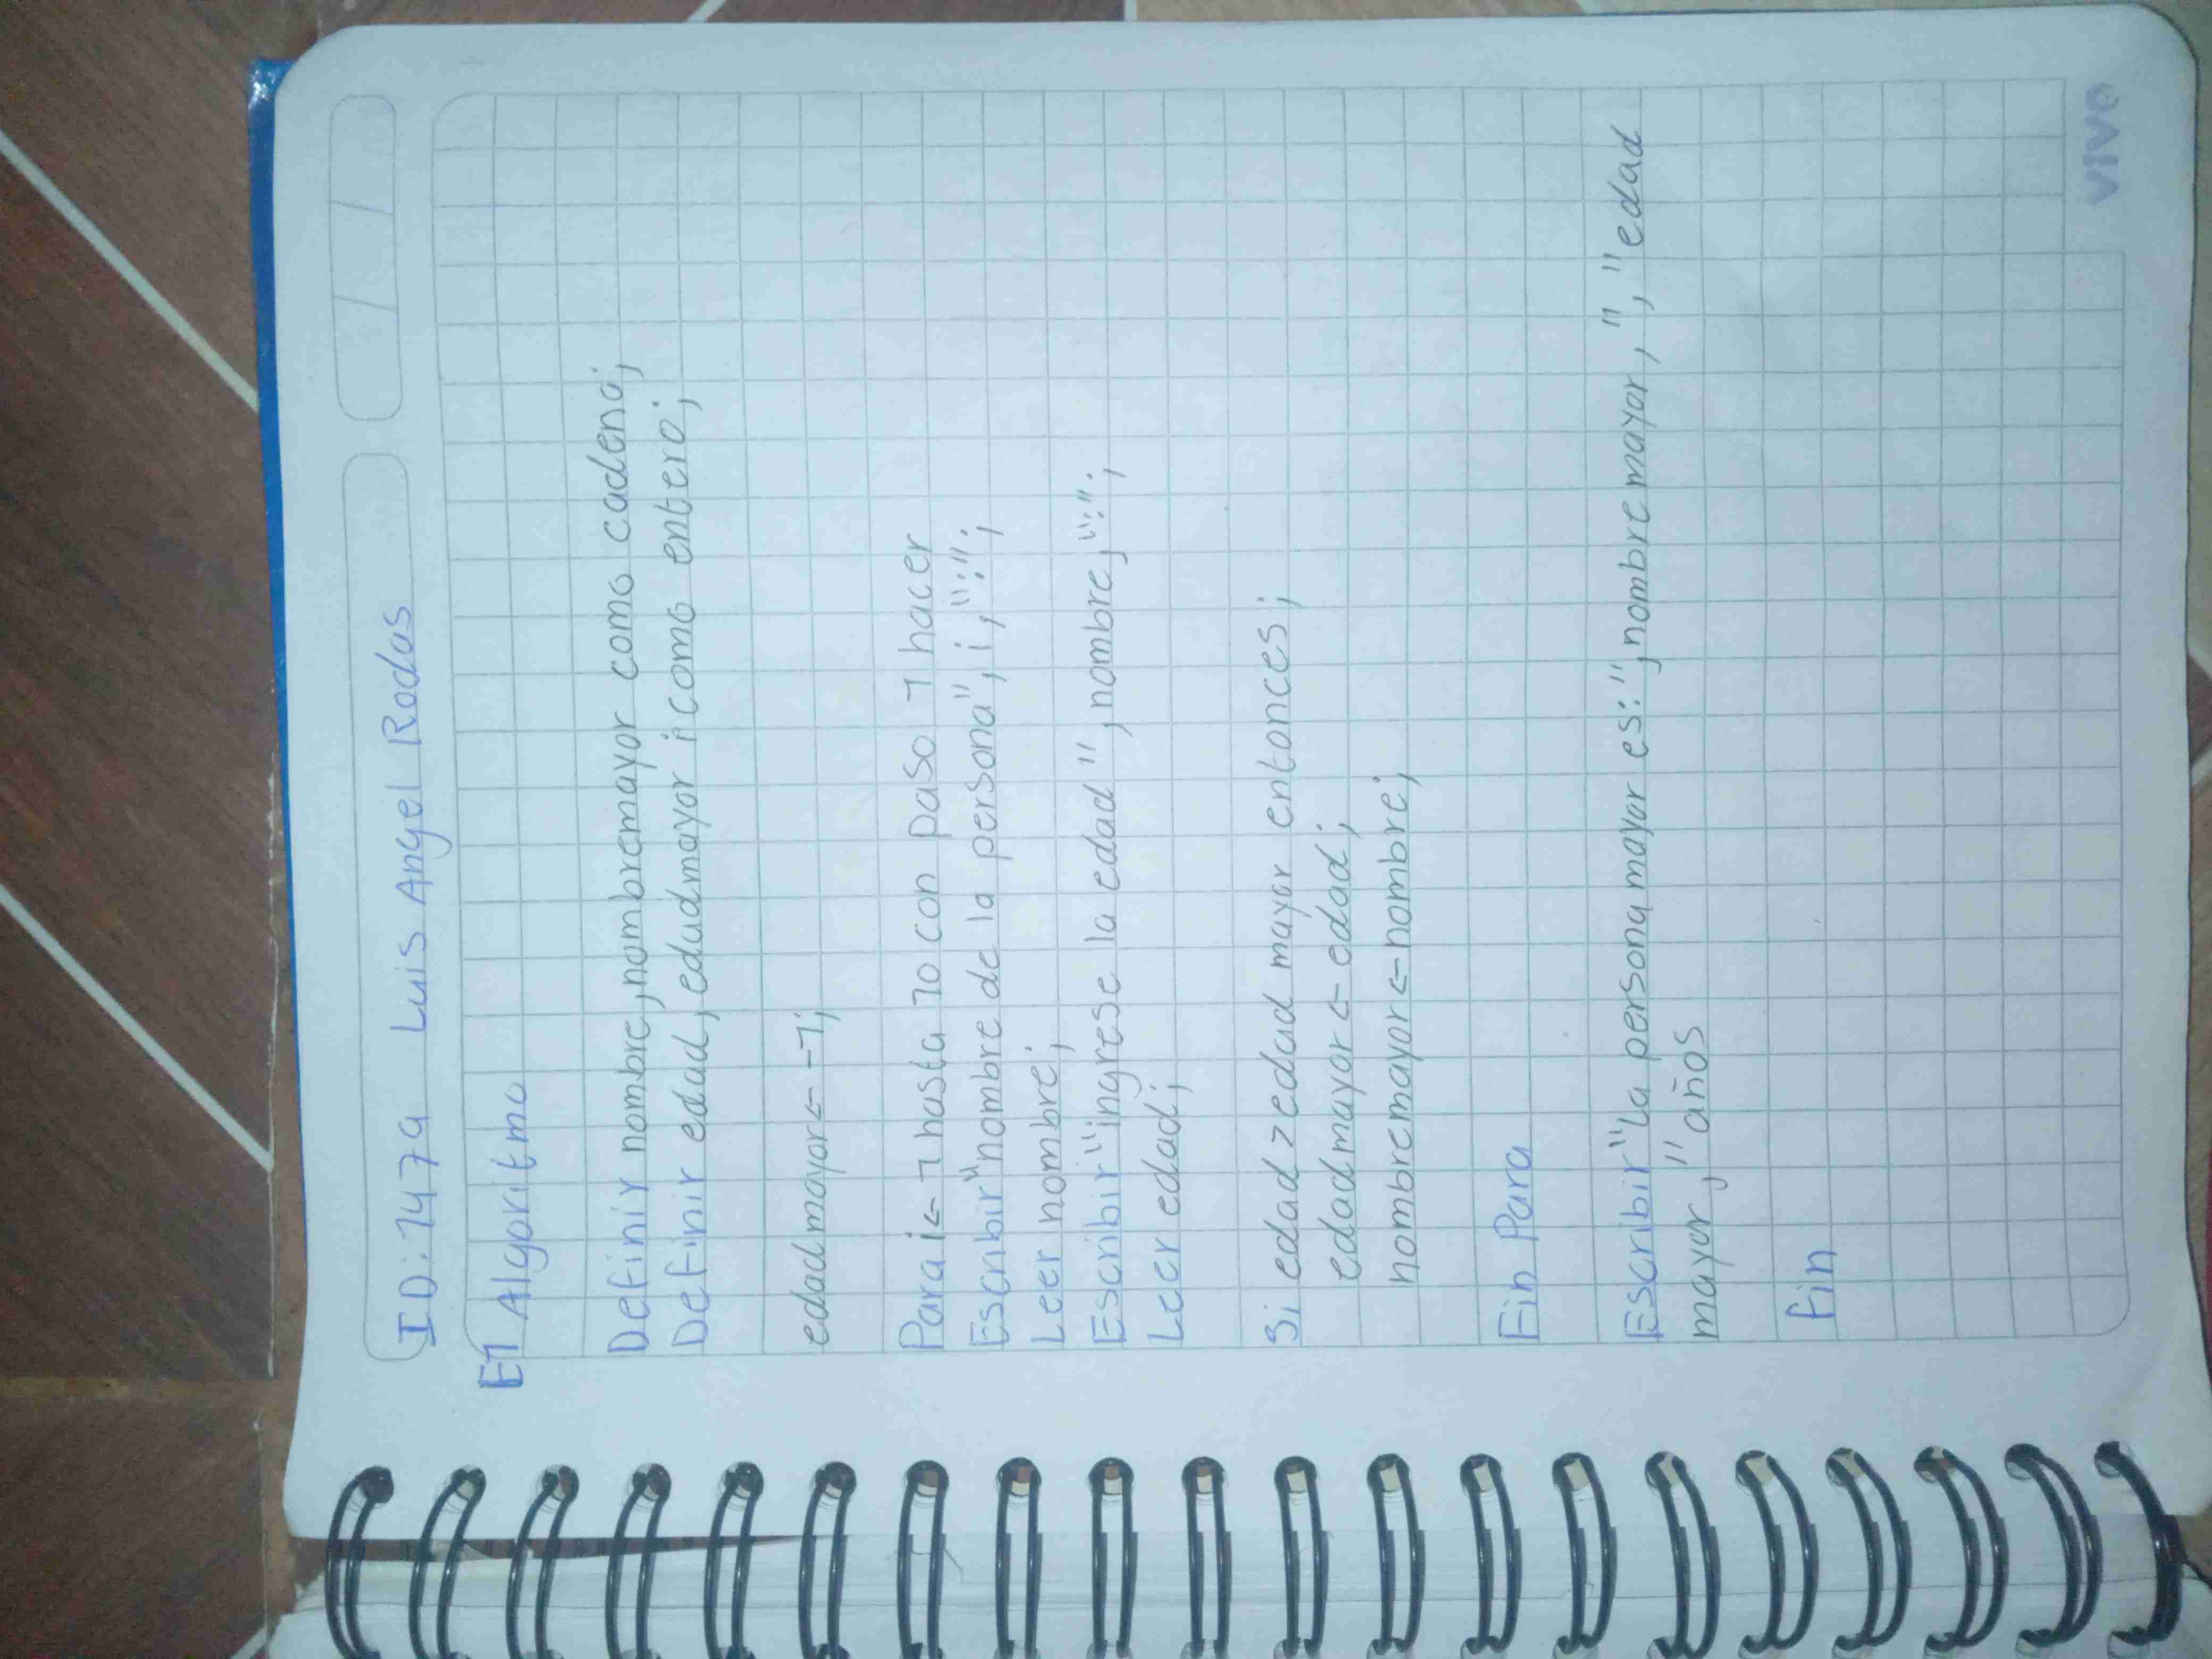 ID: 1479 Luis Angel Rodas
E1 Algoritmo
Definir nombre, nombremayor como cadena;
Definir edad, edadmayor i como entero;
edadmayor ← -1;
Para i ← 1 hasta 10 con paso 1 hacer
Escribir "nombre de la persona", i, ":";
Leer nombre;
Escribir "ingrese la edad", nombre, ":";
Leer edad;
Si edad > edad mayor entonces;
edadmayor ← edad;
nombremayor ← nombre;
Fin Para
Escribir "la persona mayor es:", nombre mayor, ", "edad
mayor, "años
fin
vivo